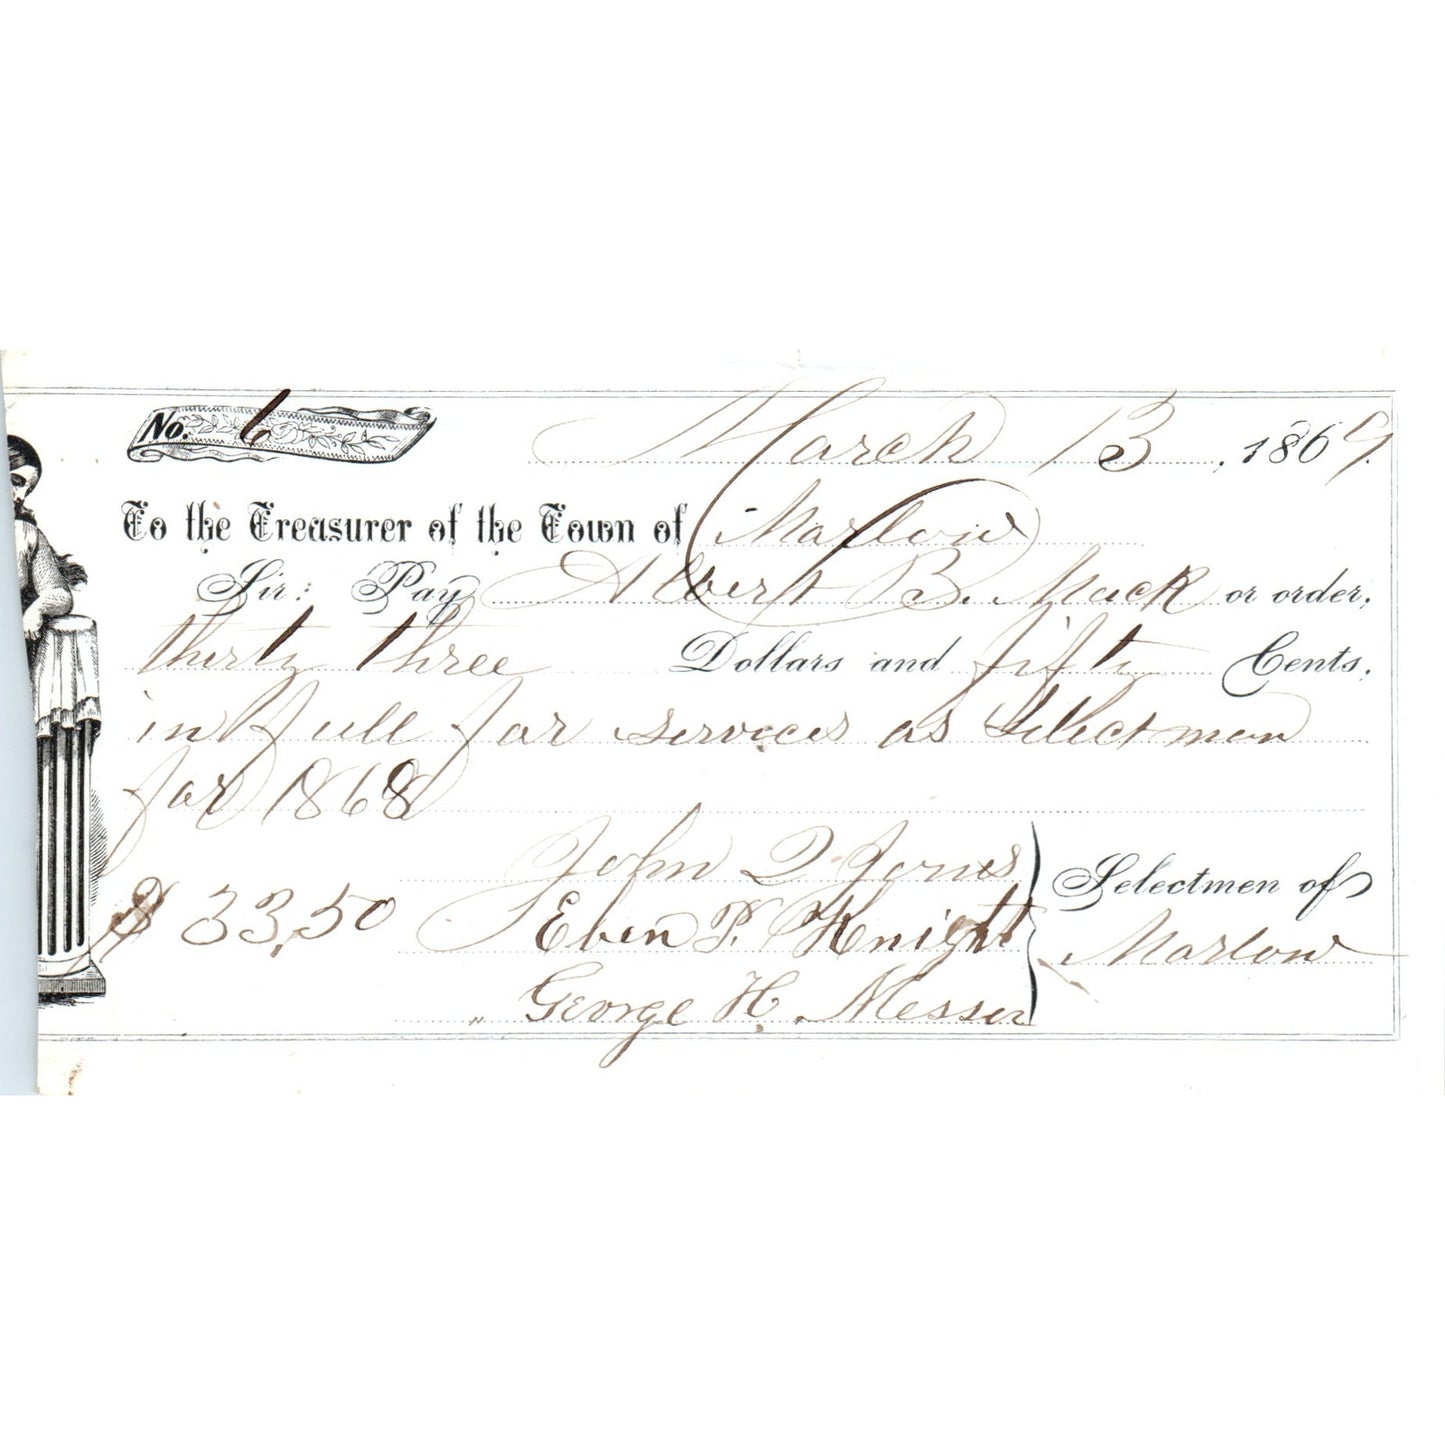 No. 6
March 13, 1869.
To the Treasurer of the Town of Marlow
Sir: Pay Albert B. Mack or order,
thirty three Dollars and fifty Cents.
in full for services as Selectman
for 1868
$33,50
John Q. Jones
Eben P. Knight
George H. Messer
Selectmen of
Marlow